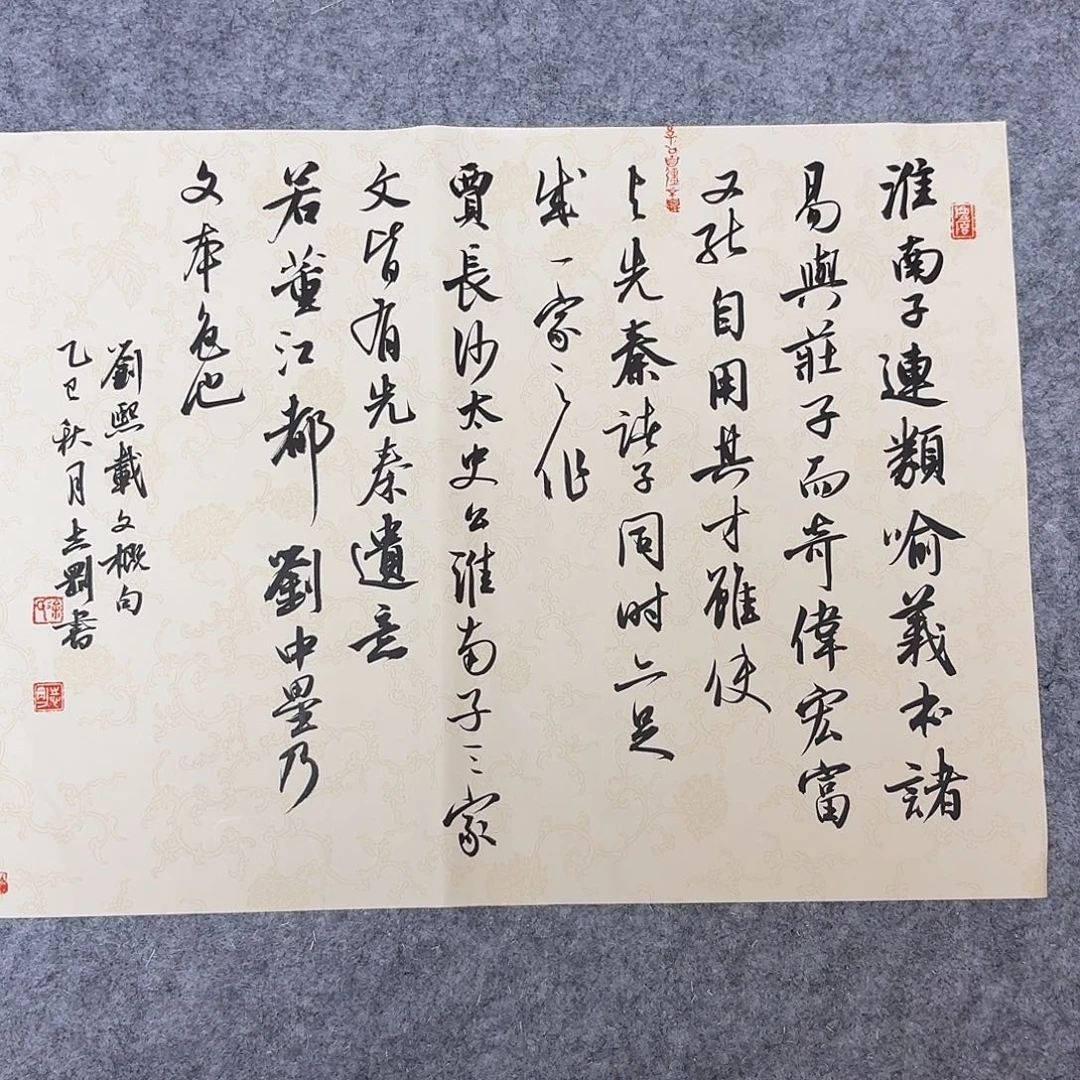 淮南子連類喻義本諸
易與莊子而奇偉宏富
又能自用其才雖使
与先秦諸子同時亦足
成一家之作
賈長沙太史公淮南子三家
文皆有先秦遺意
若董江都劉中壘乃
文本色也
劉熙載文概句
乙巳秋月志剛書